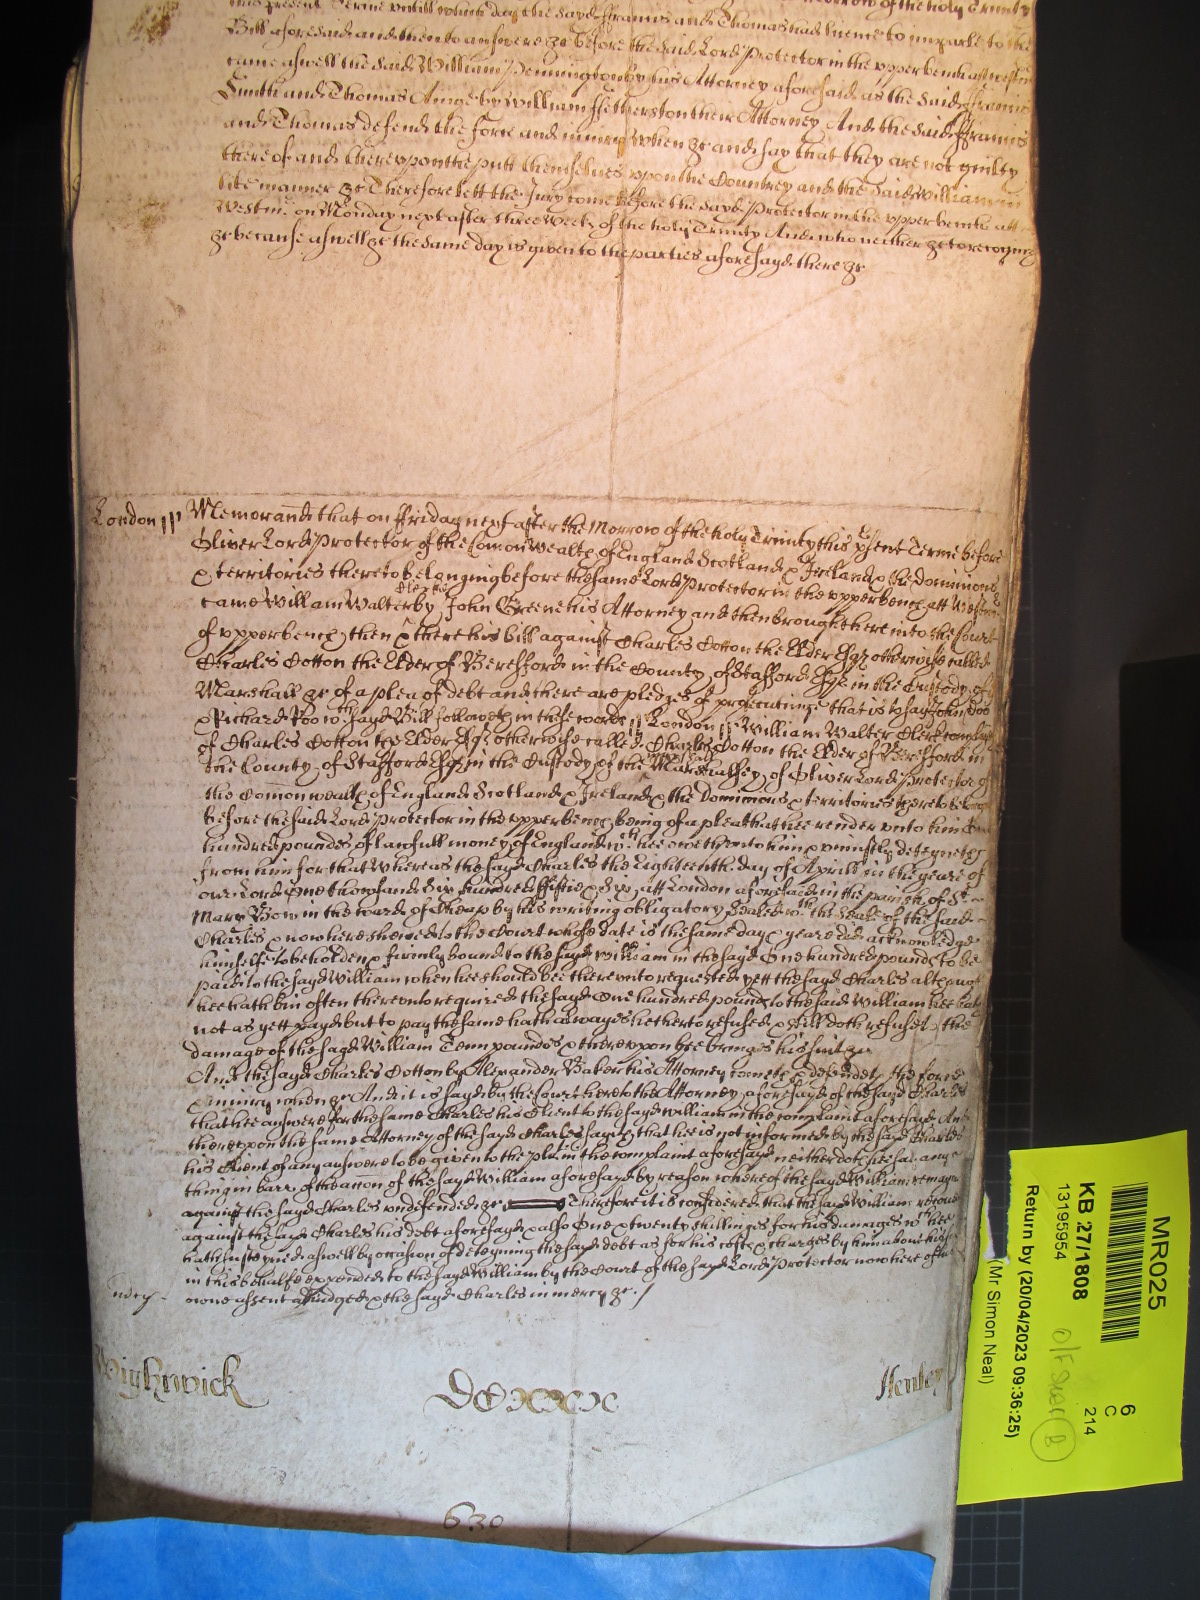 this present Terme untill which day the sayd ffrancis and Thomas had lycence to imparle to the
Bill aforesaid and then to answere &c before the said Lord Protector in the upper bench att Westm
came aswell the said William Pennington by his Attorney aforesaid as the said ffrancis
Smith and Thomas Ainge by William ffetherston their Attorney And the said ffrancis
and Thomas defend the force and iniury when &c and say that they are not guilty
thereof and thereuppon the putt themselves uppon the Countrey and the said William in
like manner &c Therefore lett the Jury come before the sayd Protector in the upper bench att
Westm: on Monday next after three Weekes of the holy Trinity And who neither &c to recognize
&c because aswell &c the same day is given to the parties aforesayd there &c
London //
Memorand that on ffriday next after the Morrow of the holy Trinity this psent Terme before
Oliver Lord Protector of the Comon Wealth of England Scotland & Ireland & the Dominions
& territories thereto belonging before the same Lord Protector in the upper bench att Westm
came William Walter Clerke by John Greene his Attorney and then brought here into the Court
of upper bench then & there his bill against Charles Cotton the Elder Esqr otherwise called
Charles Cotton the Elder of Beresford in the County of Stafford Esqr in the Custody of
Marshall &c of a plea of debt and there are pledges of prosecuting that is to say John Doo
& Richard Roo wch sayd Bill followeth in these words // London // William Walter Clerk
of Charles Cotton the Elder Esqr otherwise called Charles Cotton the Elder of Beresford in
the County of Stafford Esqr in the Custody of the Marshall of the Marshalsey of Oliver Lord Protector of
the Comonwealth of England Scotland & Ireland & the Dominions & territories thereto belong
before the said Lord Protector in the upper bench being of a plea that hee render unto him One
hundred poundes of lawfull money of England wch hee oweth unto him & uniustly deteyneth
from him for that Whereas the sayd Charles the Eighteenth day of Aprill in the yeare of
our Lord One thowsand Six hundred ffiftie & Six att London aforesaid in the parish of St
Mary Bow in the ward of Cheap by his writing obligatory Sealed wth the Seale of the said
Charles & now here shewed to the Court whose date is the same day & yeare did acknowledge
himselfe to be holden & firmly bound to the sayd William in the sayd One hundred pounds to be
paid to the sayd William when hee should bee thereunto requested yett the sayd Charles although
hee hath bin often thereunto required the sayd One hundred pounds to the said William hee hath
not as yett payd but to pay the same hath alwayes hetherto refused & still doth refuse to the
damage of the sayd William Tenn poundes & thereuppon hee brings his suit &c
And the sayd Charles Cotton by Alexander Baker his Attorney cometh & defendeth the force
& iniury when &c And it is sayd by the Court here to the Attorney aforesayd of the said Charles
that hee answere for the same Charles his Client to the sayd William in the complaint aforesaid And
thereupon the same Attorney of the sayd Charles sayth that hee is not informed by the sayd Charles
his Client of any answere to be given to the plt in the complaint aforesayd neither doth hee say any
thing in barr of the action of the sayd William aforesayd by reason whereof the sayd William remayns
against the sayd Charles undefended &c Therefore it is considered that the sayd William recover
against the sayd Charles his debt aforesayd & also One & twenty shillinges for his damages wch hee
hath susteyned aswell by occasion of deteyning the sayd debt as for his costs & charges by him about his suit
in this behalfe expended to the sayd William by the Court of the sayd Lord Protector now here of his
owne assent adiudged & the sayd Charles in mercy &c /
mercy
Wightwick
DCxxx
Henley
630
MR025
KB 27/1808
13195954
Return by (20/04/2023 09:36:25)
(Mr Simon Neal)
6
C
214
B